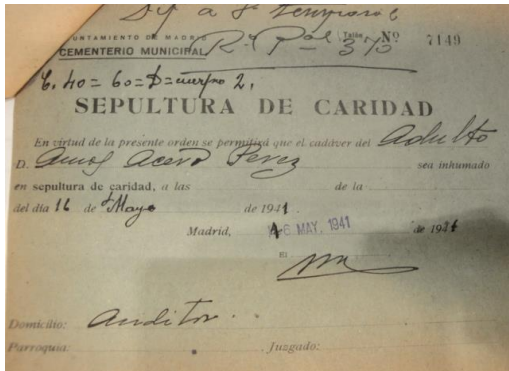 Sepª Temporal
AYUNTAMIENTO DE MADRID
CEMENTERIO MUNICIPAL Talón Nº 7149
370
C. 40 = 60 = D = cuerpo 2,
SEPULTURA DE CARIDAD
En virtud de la presente orden se permitirá que el cadáver del Adulto
D. Amos Acero Perez sea inhumado
en sepultura de caridad, a las de la
del día 16 de Mayo de 1941
Madrid, 16 MAY. 1941 de 1941
Domicilio: Auditor.
Parroquia: Juzgado: